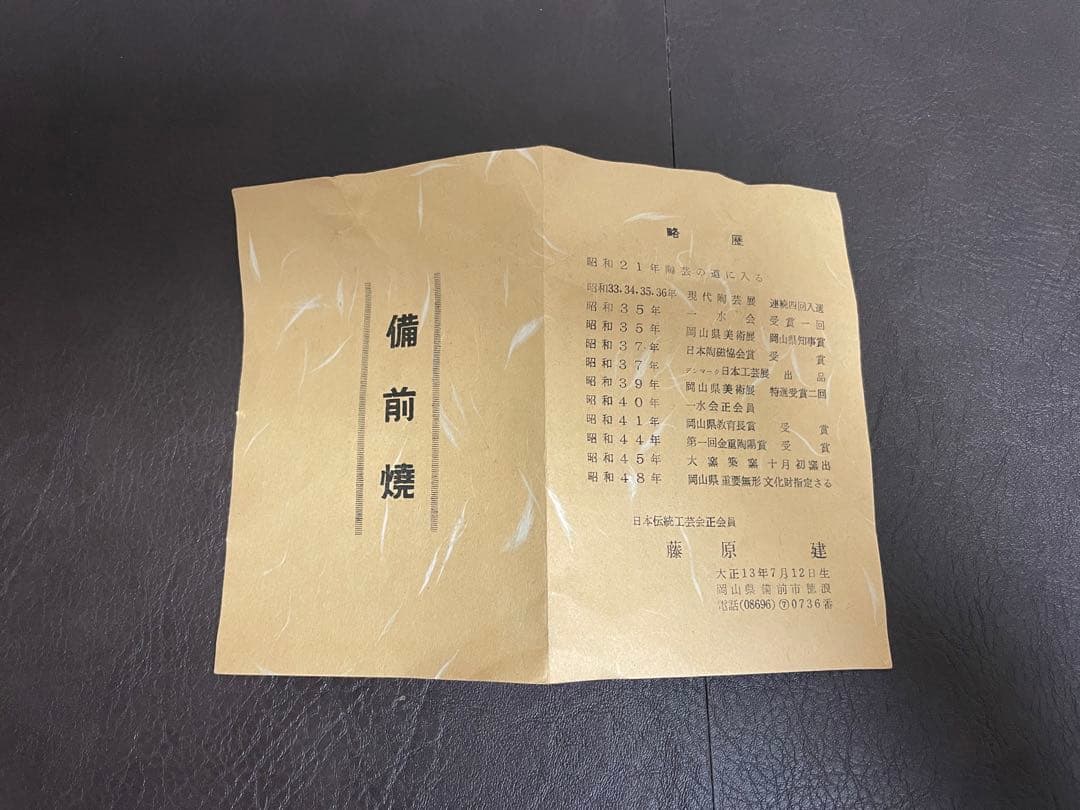 備前燒
略歴
昭和21年陶芸の道に入る
昭和33.34.35.36年 現代陶芸展 連続四回入選
昭和35年 一水会 受賞一回
昭和35年 岡山県美術展 岡山県知事賞
昭和37年 日本陶磁協会賞 受賞
昭和37年 デンマーク日本工芸展 出品
昭和39年 岡山県美術展 特選受賞二回
昭和40年 一水会正会員
昭和41年 岡山県教育長賞 受賞
昭和44年 第一回金重陶陽賞 受賞
昭和45年 大窯築窯 十月初窯出
昭和48年 岡山県重要無形文化財指定さる
日本伝統工芸会正会員
藤原 建
大正13年7月12日生
岡山県備前市穂浪
電話(08696)⑦0736番